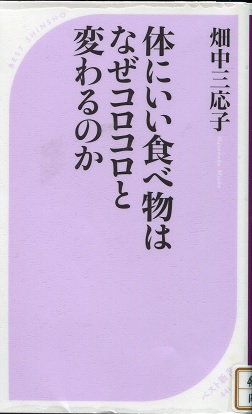 畑中三応子
体にいい食べ物は
なぜコロコロと
変わるのか
BEST SHINSHO